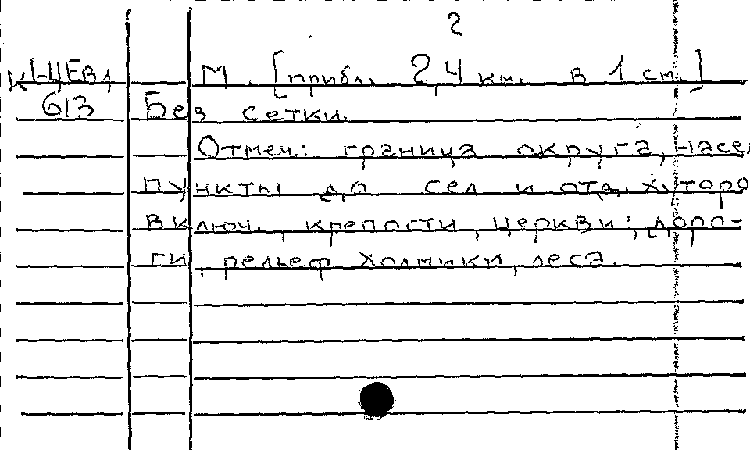 2
М. [прибл. 2,4 км. в 1 см.]
613 Без сетки.
Отмеч.: граница округа, насел
пункты до сел и отд. хуторо
включ., крепости, церкви; доро-
ги, рельеф холмики, леса.